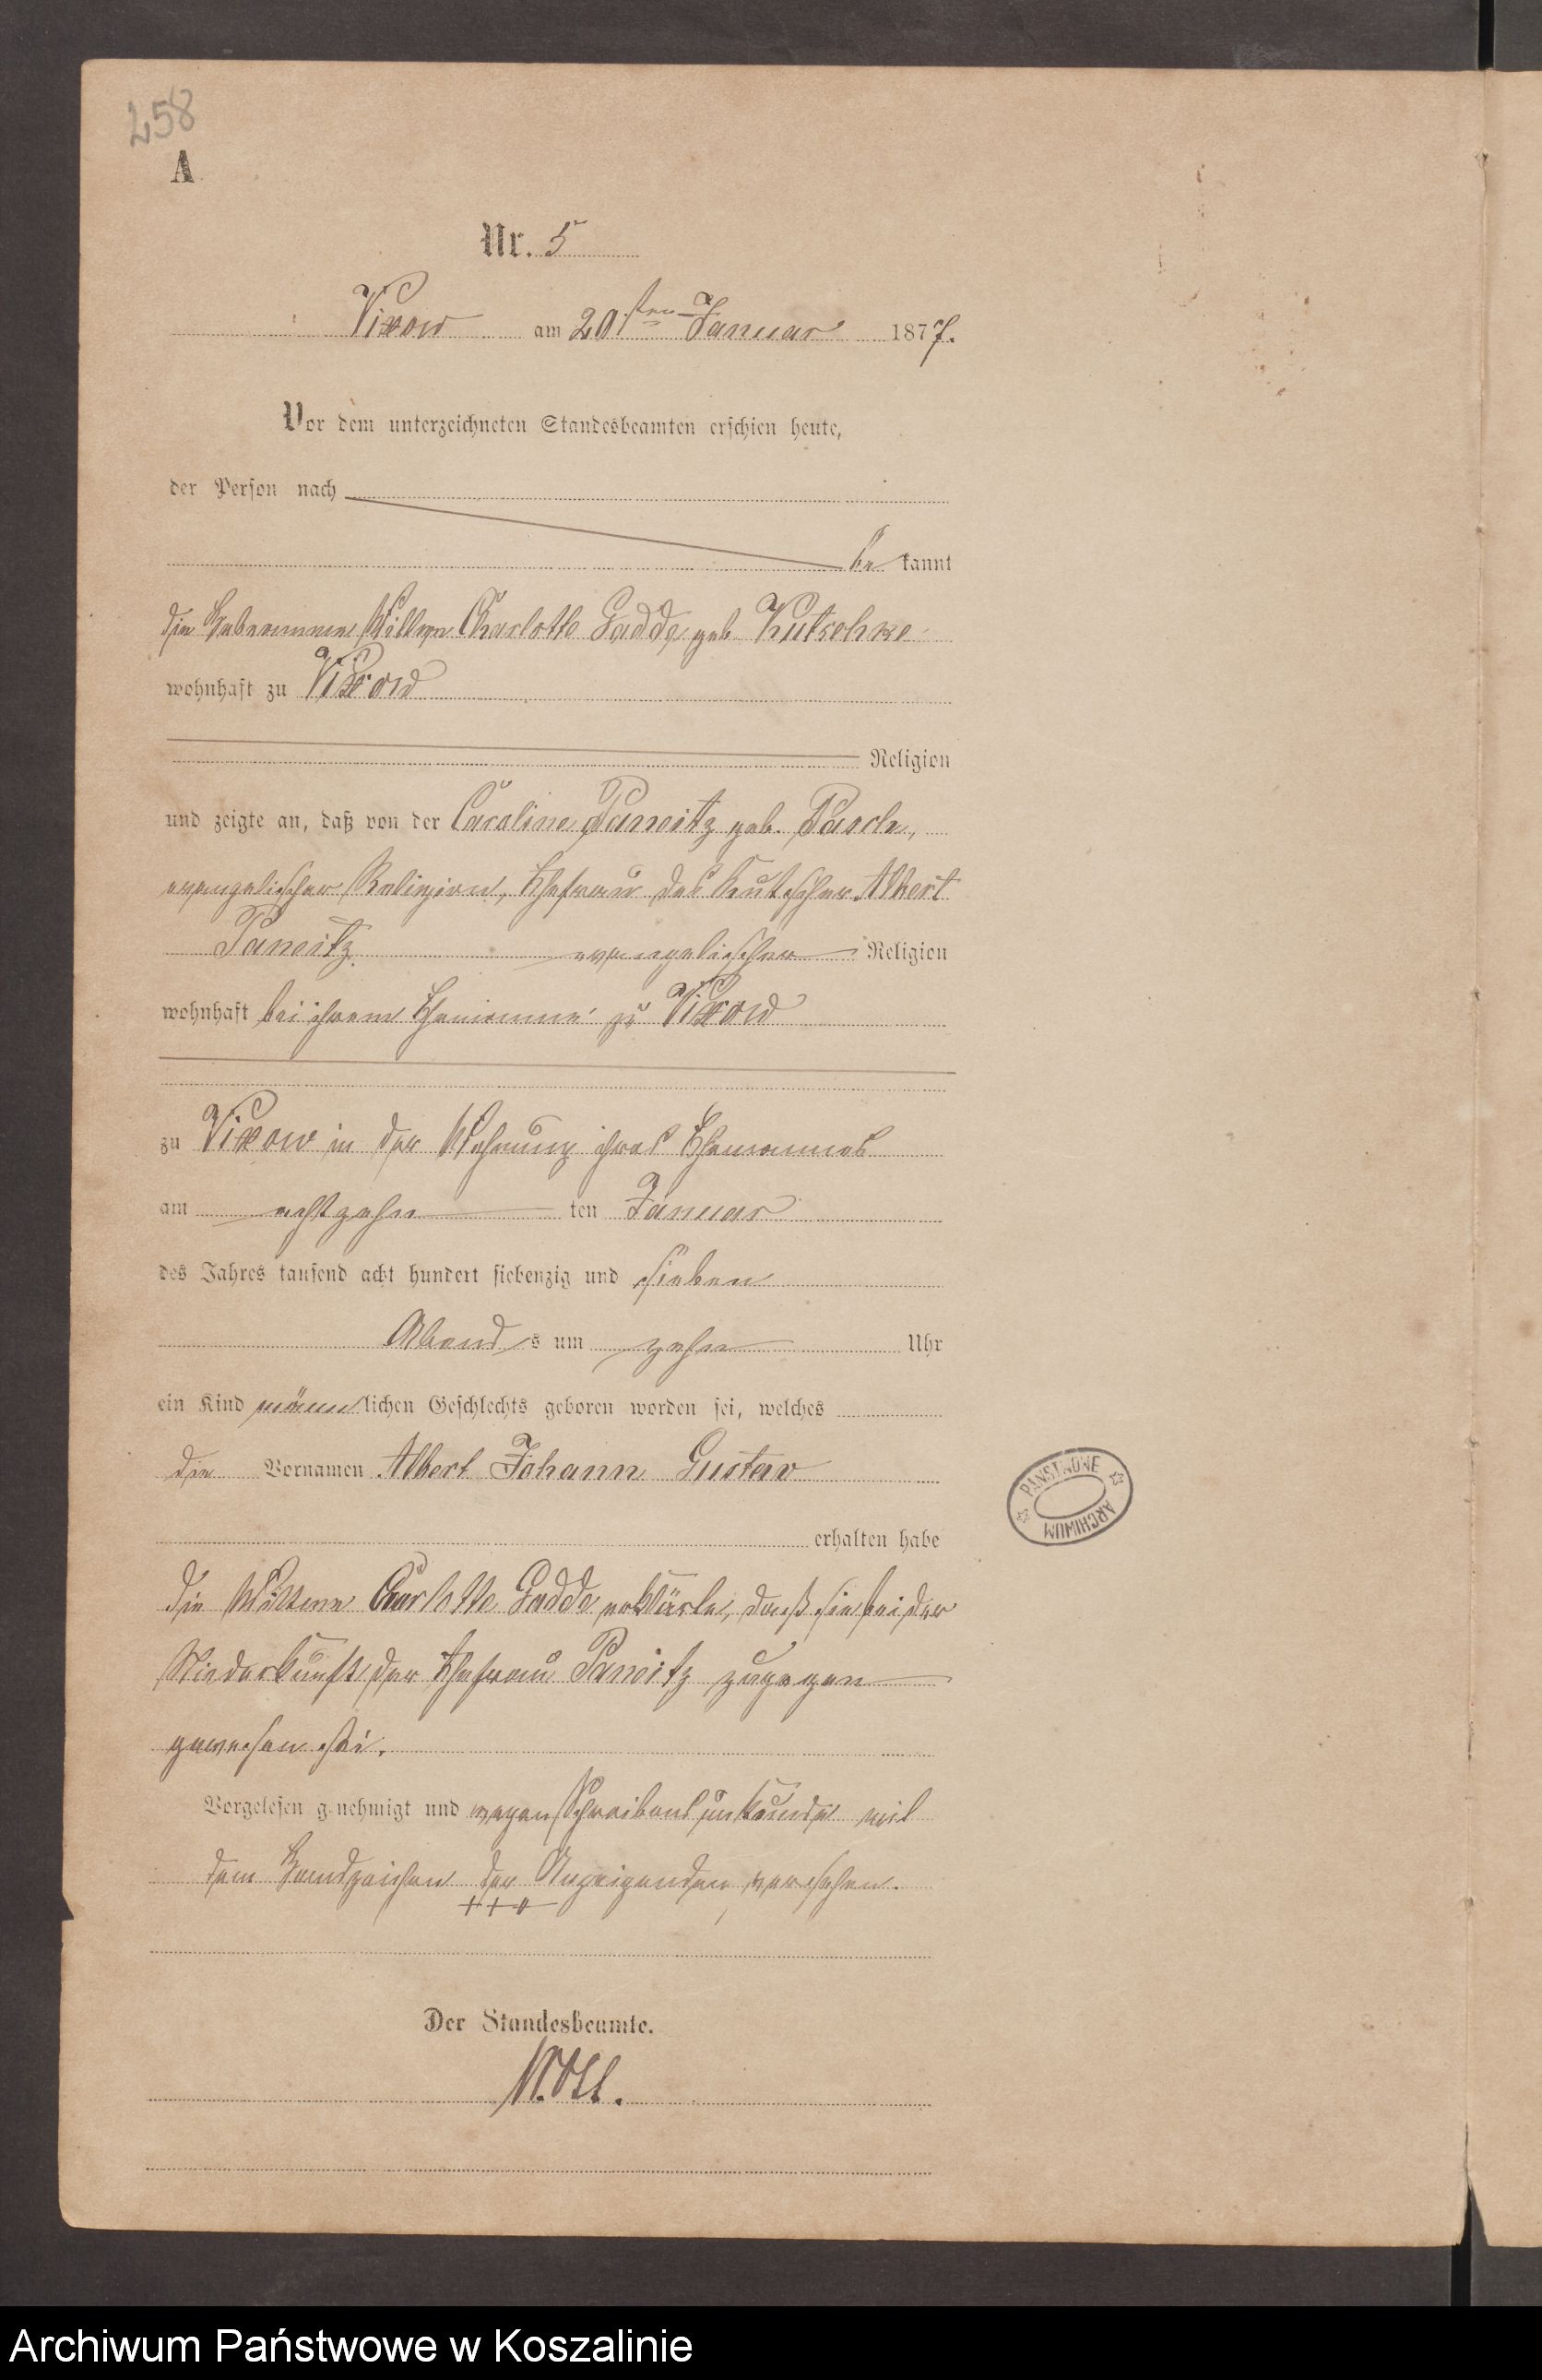 258
A
Nr. 5
Vixow am 20sten Januar 1877.
Vor dem unterzeichneten Standesbeamten erschien heute,
der Person nach
be kannt
die Hebeamme Wittwe Charlotte Gadde geb. Kutschke
wohnhaft zu Vixow
Religion
und zeigte an, daß von der Caroline Paneitz geb. Pasch,
evangelischer Religion, Ehefrau des Kutscher Albert
Paneitz evangelischer Religion
wohnhaft bei ihrem Ehemanne zu Vixow
zu Vixow in der Wohnung ihres Ehemannes
am achtzehn ten Januar
des Jahres tausend acht hundert siebenzig und sieben
Abend s um zehn Uhr
ein Kind männlichen Geschlechts geboren worden sei, welches
die Vornamen Albert Johann Gustav
erhalten habe
Die Wittwe Charlotte Gadde erklärte, daß sie bei der
Niederkunft der Ehefrau Paneitz zugegen
gewesen sei.
Vorgelesen genehmigt und wegen Schreibens unkunde mit
dem Handzeichen der Anzeigenden versehen.
+++
Der Standesbeamte.
PAŃSTWOWE ARCHIWUM
Archiwum Państwowe w Koszalinie